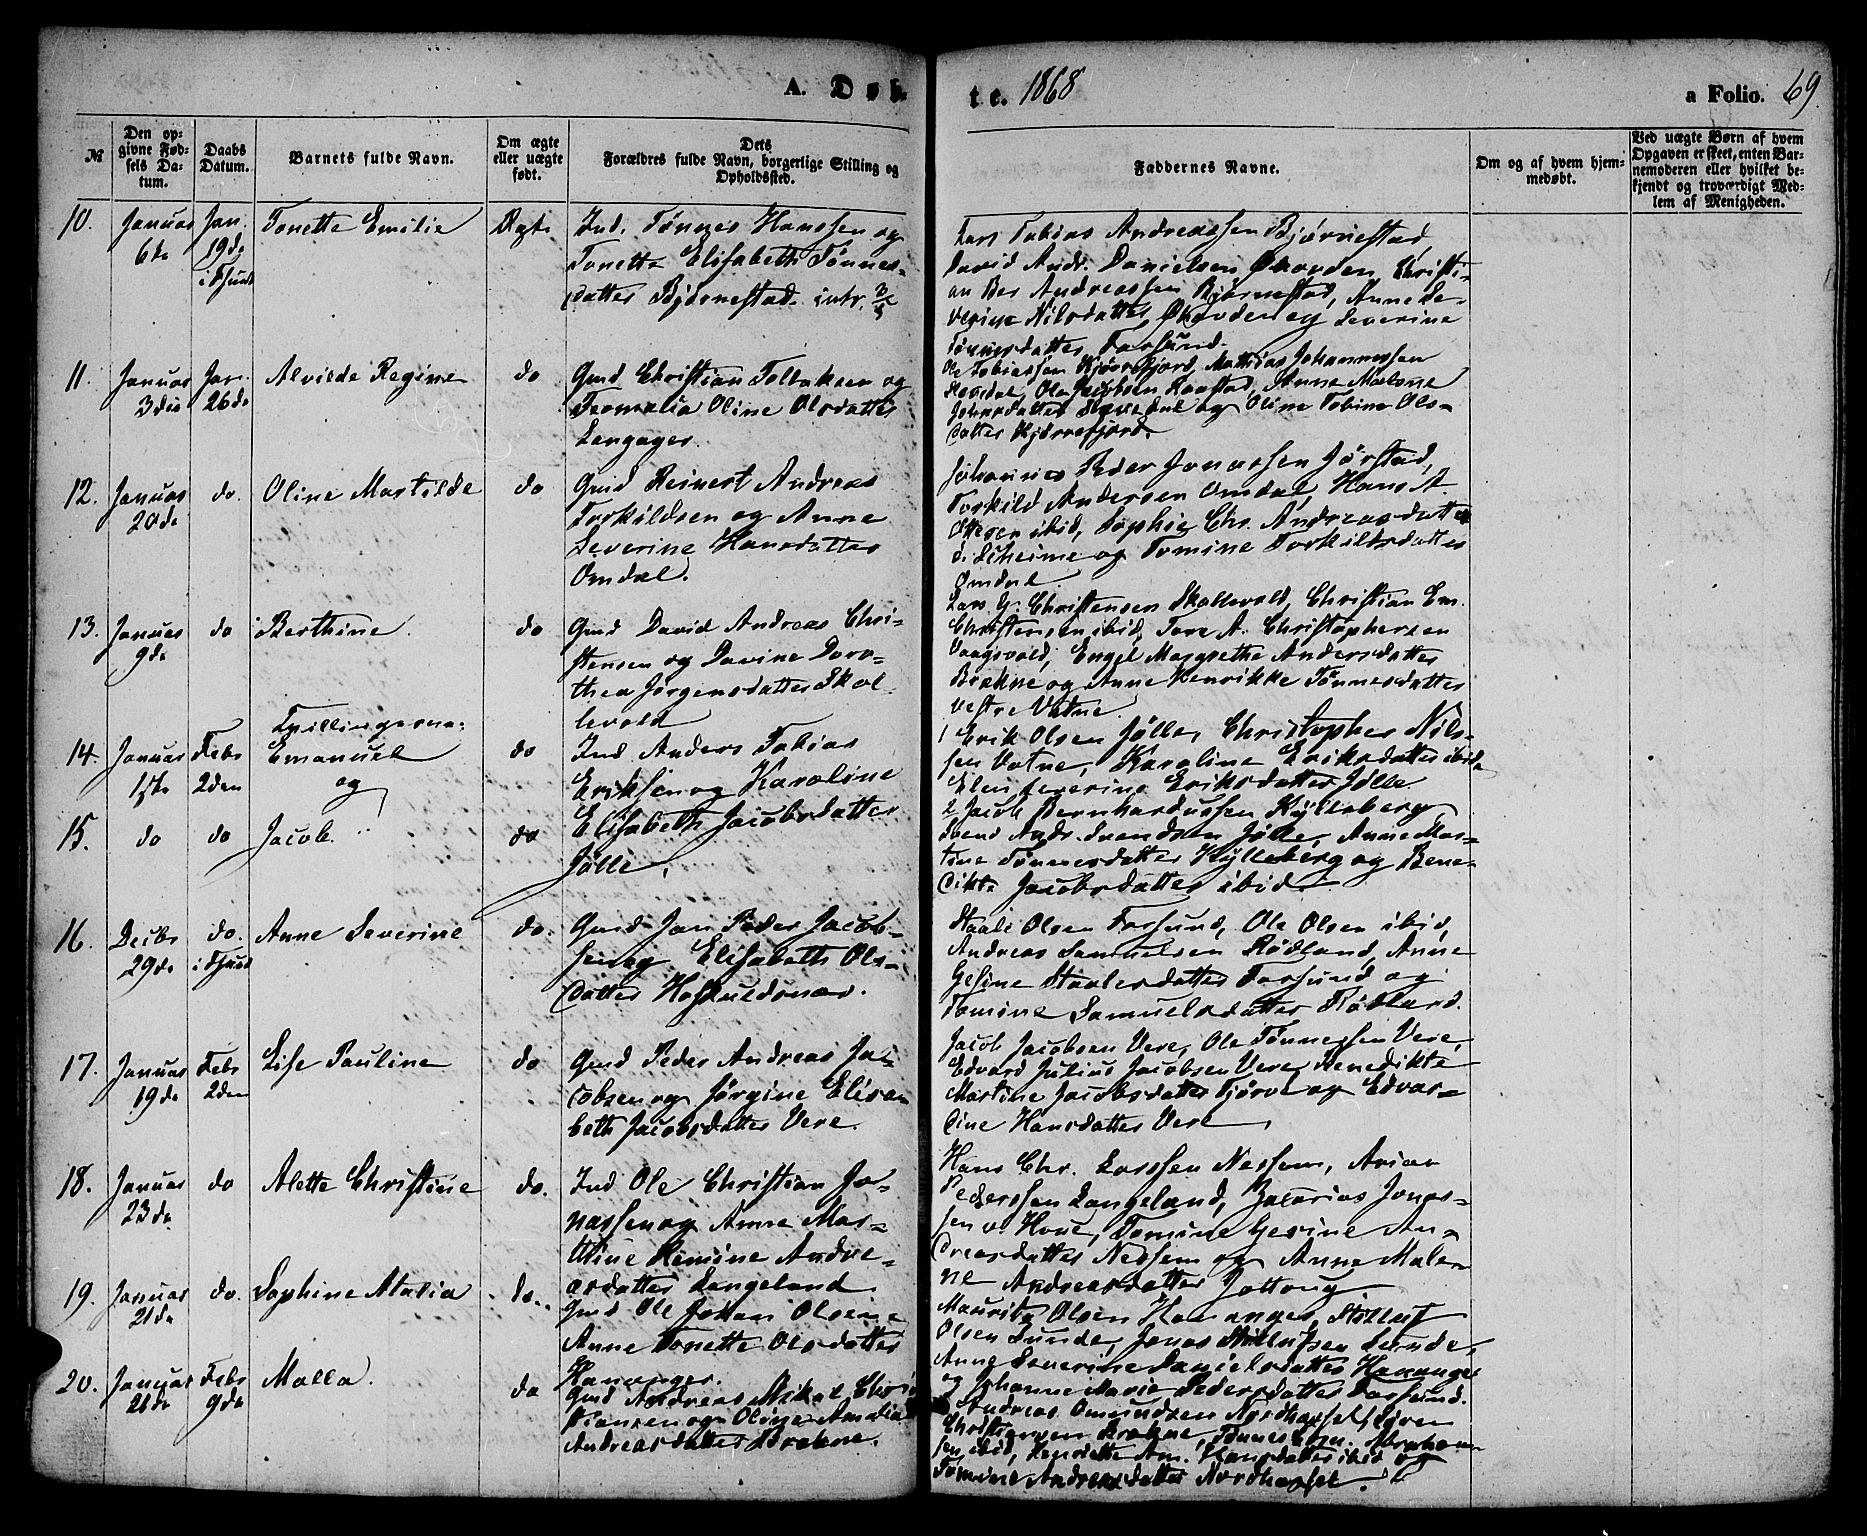 A. Døb-
te. 1868
a Folio. 69.
№
Den op-
givne Fød-
sels Da-
tum.
Daabs
Datum.
Barnets fulde Navn.
Om ægte
eller uægte
født.
Dets
Forældres fulde Navn, borgerlige Stilling og
Opholdssted.
Faddernes Navne.
Om og af hvem hjem-
medøbt.
Ved uægte Børn af hvem
Opgaven er skeet, enten Bar-
nemoderen eller hvilket be-
kjendt og troværdigt Med-
lem af Menigheden.
10.
Januar
6te
Jan.
19de
i Fsund
Tonette Emilie
Ægte
Ind. Tønnes Hanssen og
Tonette Elisabeth Tønnes-
datter Bjørnestad. intr.
Lars Tobias Andreassen Bjørnestad,
David Andr. Danielsen Christi-
an Ber Andreassen Bjørnestad, Anne Se-
verine Nilsdatter og Severine
Tønnesdatter Farsund.
11.
Januar
3die
Jan.
26de
Alvilde Regine
do
Gmd Christian Tollaksen og
Tromalia Oline Olsdatter
Langager.
Ole Tobiassen Kjørrefjord, Mathias Johannessen
Ole Jacobsen Anne Malene
og Oline Tobine Ols-
datter Kjørrefjord.
12.
Januar
20de
do.
Oline Martilde
do
Gmd Reinert Andreas
Torkildsen og Anne
Severine Hansdatter
Omdal.
Johannes Peder Jonassen Jørstad,
Torkild Andersen Omdal, Hans A
ibid, Sophie Chr. Andreasdatter
og Tomine Torkildsdatter
Omdal
13.
Januar
9de
do
Berthine.
do
Gmd David Andreas Chri-
stensen og Davine Doro-
thea Jørgensdatter Skol
levold
Lars G. Christensen Skollevold, Christian Em.
Christensen ibid, Tore A. Christophersen
Vaagsvold, Engel Margrethe Andersdatter
Brekne og Anne Henrikke Tønnesdatter
vestre Vatne
Tvillingerne:
14.
Januar
1ste
Febr
2den
Emanuel
og
do
Ind Anders Tobias
Eriksen og Karoline
Elisabeth Jacobsdatter
Jølle.
1 Erik Olsen Jølle, Christopher Nils-
sen Vatne, Karoline Eriksdatter ibid
Elen Severine Eriksdatter Jølle
15.
do
do
Jacob.
do
2 Jacob Bernhardussen Kylleberg
Svend Andr. Svendsen Jølle, Anne Mar-
tine Tønnesdatter Kylleberg og Bene-
dikte Jacobsdatter ibid
16.
Decbr
29de
do.
i Fsund
Anne Severine
do.
Gmd Jan Peder Jacob-
sen og Elisabeth Ols-
datter Haskuldsnæs.
Staale Olsen Farsund, Ole Olsen ibid,
Andreas Samuelsen Rødland, Anne
Gesine Staalesdatter Farsund og
Tomine Samuelsdatter Rødland.
17.
Januar
19de
Febr
2den
Lise Pauline
do
Gmd Peder Andreas Ja-
cobsen og Jørgine Elisa-
beth Jacobsdatter Vere.
Jacob Jacobsen Vere, Ole Tønnessen Vere,
Edvard Julius Jacobsen Vere, Benedikte
Martine Jacobsdatter Tjørve og Edvar-
dine Hansdatter Vere
18.
Januar
23de
do
Alette Christine
do.
Ind Ole Christian Jo-
nassen og Anne Mar-
thine Andre-
asdatter Langeland
Hans Chr. Larssen Nessem, Arian
Pederssen Langeland, Zacarias Jonas-
sen v. Hove, Tomine Gesine An-
dreasdatter Nessem og Anne Male-
ne Andreasdatter
19.
Januar
21de
do.
Sophine Atalia
do.
Gmd Ole Johan Olsen
Anne Tonette Olsdatter
Hananger.
Mauritz Olsen Hananger,
Olsen Lunde, Jonas Lunde,
Anne Severine Danielsdatter Hananger
og Johanne Marie Pedersdatter Farsund.
20.
Januar
21de
Febr
9de
Malla.
do
Gmd Andreas Mikal Chris
og Oline Amalia
Andreasdatter Brekne.
Andreas Omundsen Nordhassel, Søren
Brekne, Tønnes Abraham-
sen ibid, Henriette Am. Hansdatter ibid og
Tomine Andreasdatter Nordhassel.